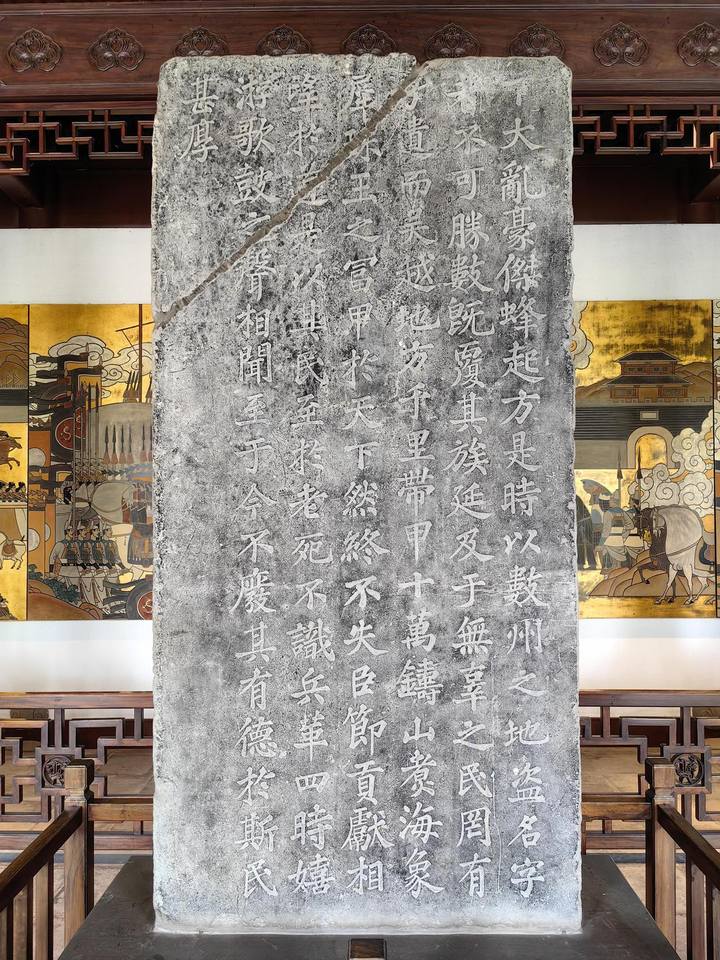 下大亂豪傑蜂起方是時以數州之地盜名字
者不可勝數既覆其族延及于無辜之民罔有
孑遺而吳越地方千里帶甲十萬鑄山煑海象
犀珠玉之富甲於天下然終不失臣節貢獻相
望於道是以其民至於老死不識兵革四時嬉
游歌鼓之聲相聞至于今不廢其有德於斯民
甚厚